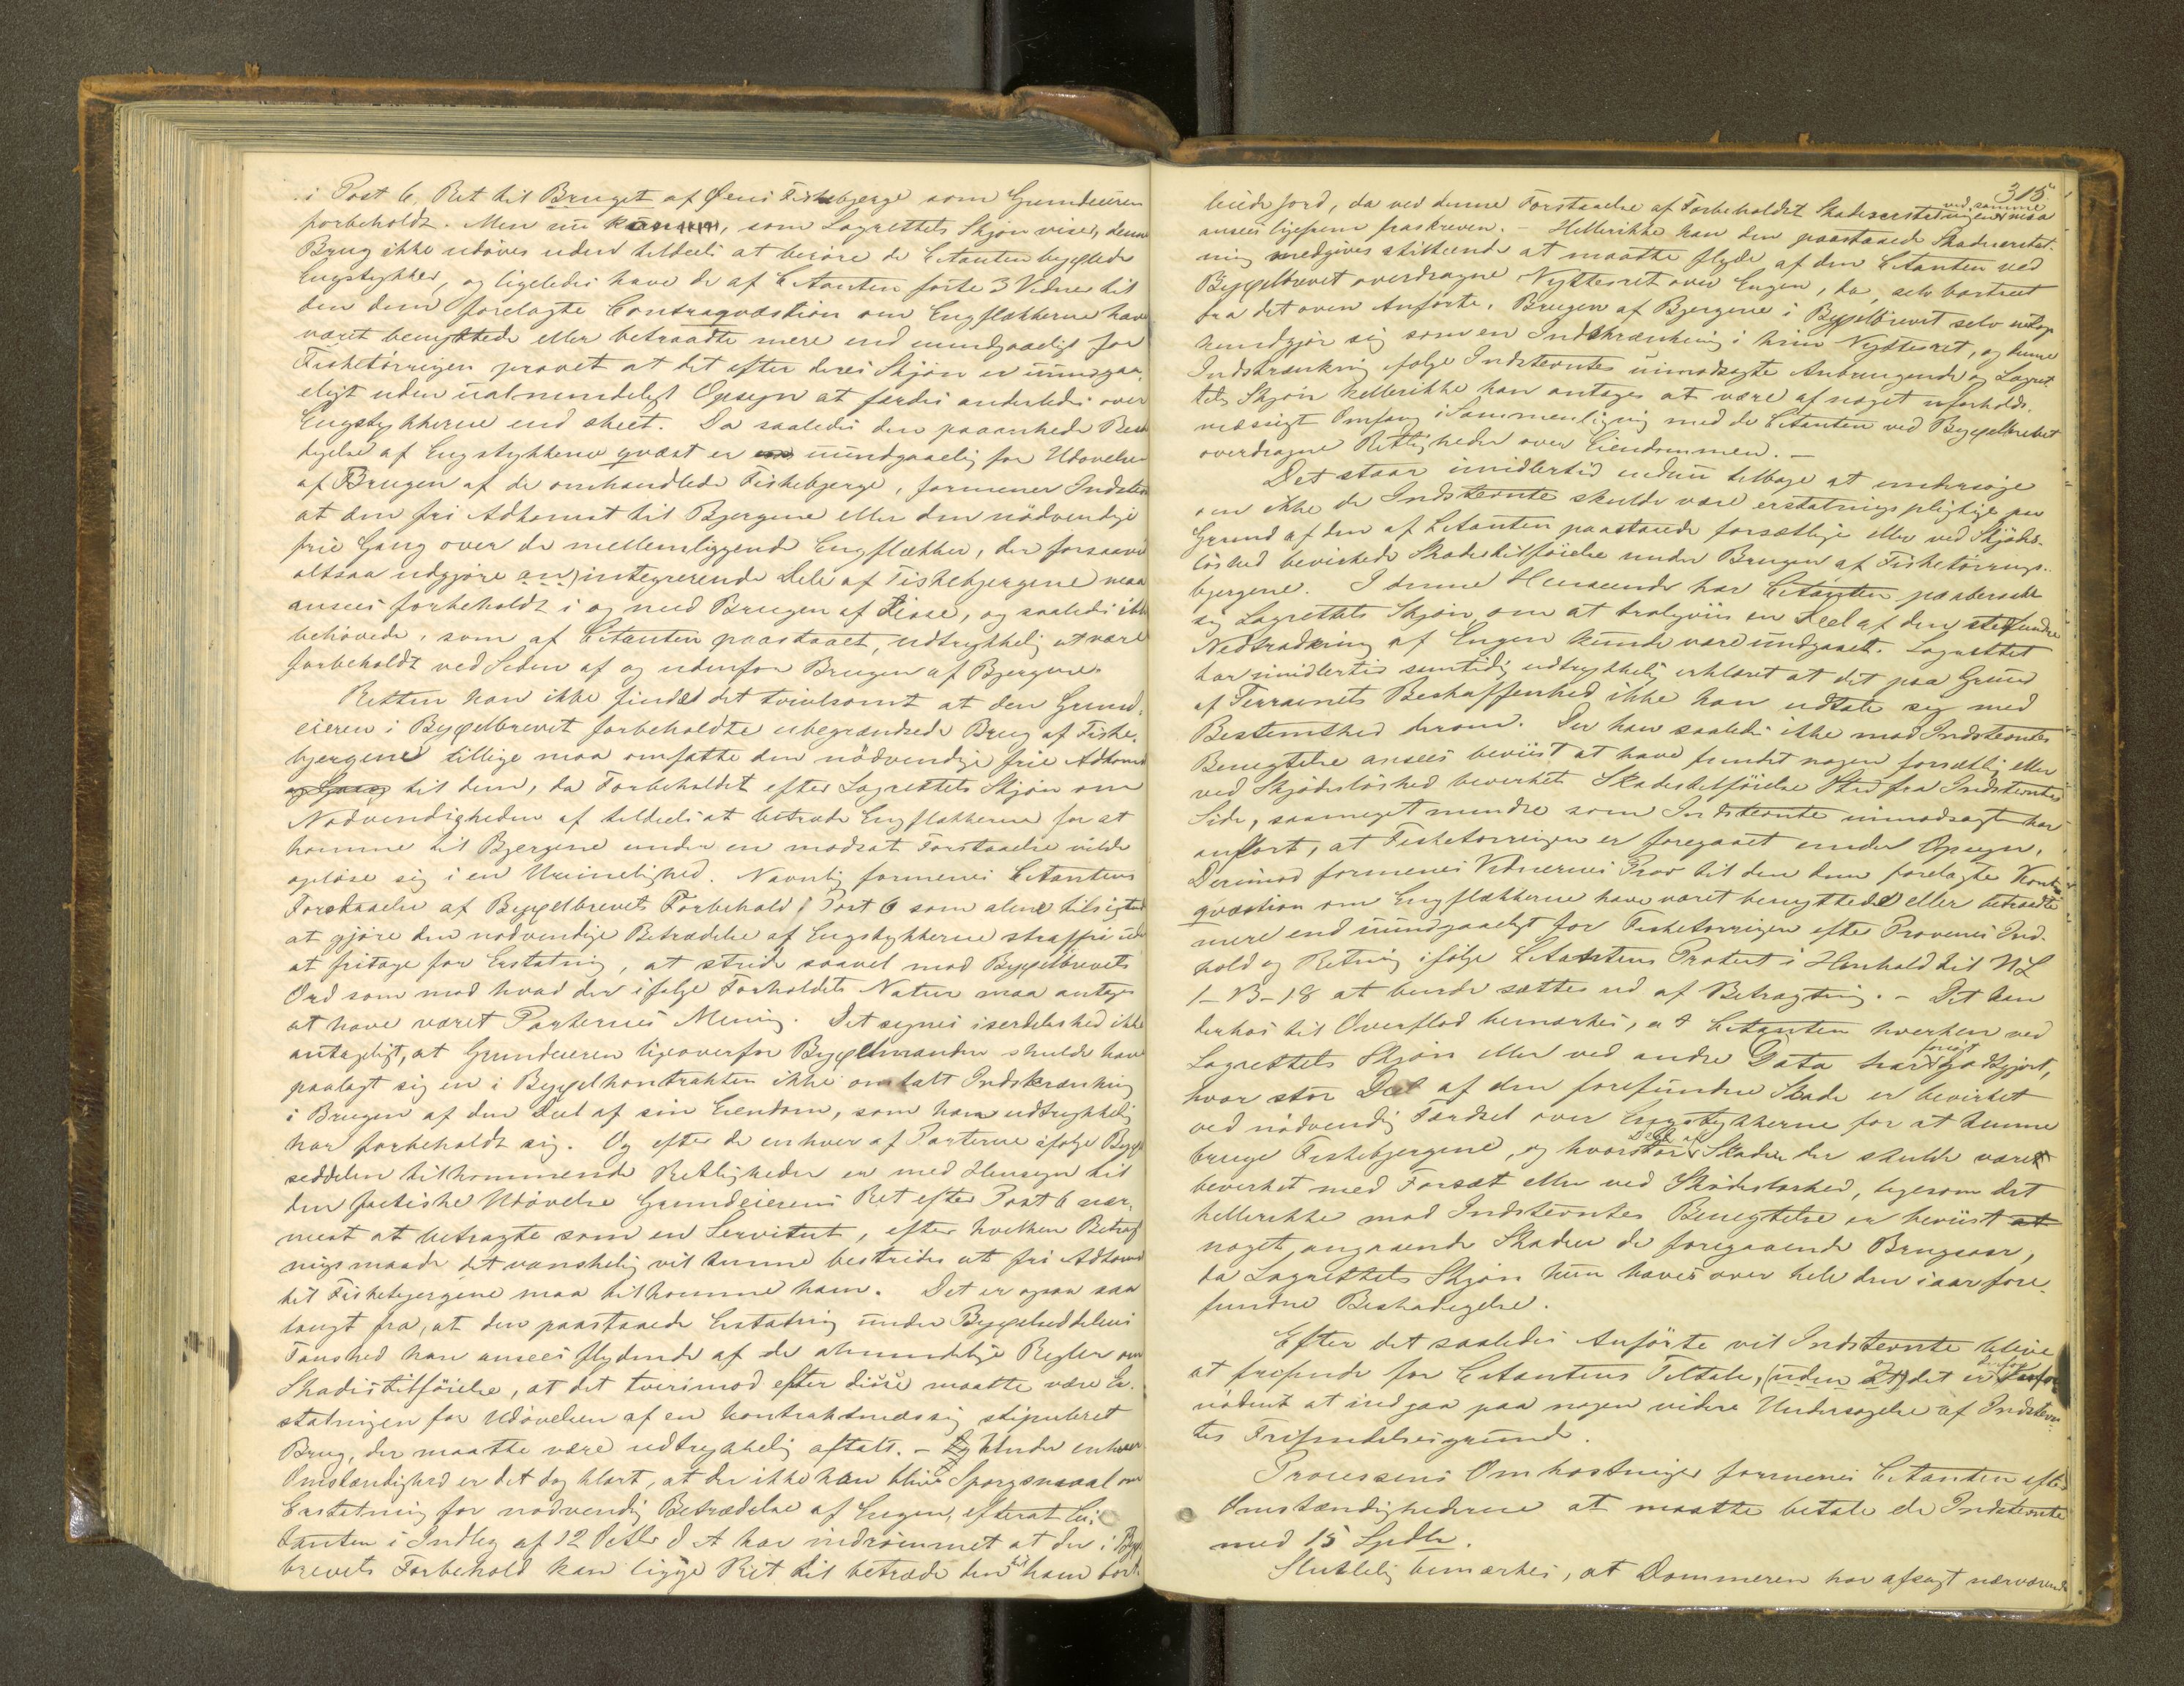 i Post 6, Ret til Bruget af Øens Fiskebjerge som Grundeieren
forbeholdt. Men nu kan, som Lagrettets Skjøn viser, denne
Brug ikke udøves uden tildeels at berøre de Citanten bygslede
Engstykker, og ligeledes have de af Citanten førte 3 Vidner til
den dem forelagte Contraqvæstion om Engflækkerne have
været benyttede eller betraadte mere end uundgaaeligt for
Fisketørringen provet at det efter deres Skjøn er uundgaa-
eligt uden ualmindeligt Opsegn at færdes anderledes over
Engstykkerne end skeet. Da saaledes den paaankede Besk
tigelse af Engstykkerne qvæst er uundgaaelig for Udøvelsen
af Brugen af de omhandlede Fiskebjerge, formener Indstevnte
at den fri Adkomst til Bjergene eller den nödvendige
frie Gang over de mellemliggende Engflækker, der forsaavidt
altsaa udgjøre en integrerende Dele af Fiskebjergene maa
ansees forbeholdt i og med Brugen af disse, og saaledes ikke
behövede, som af Citanten paastaaet, udtrykkelig at være
forbeholdt ved Siden af og udenfor Brugen af Bjergene.
Retten kan ikke finde det tvivlsomt at den Grund-
eieren i Bygselbrevet forbeholdte ubegrændsede Brug af Fiske-
bjergene tillige maa omfatte den nödvendige frie Adkomst
og Gang til dem, da Forbeholdet efter Lagrettets Skjøn om
Nödvendigheden af tildeels at betræde Engflækkerne for at
komme til Bjergene under en modsat Forstaaelse vilde
opløse sig i en Urimelighed. Navnlig formenes Citantens
Forstaaelse af Bygselbrevets Forbehold i Post 6 som alene tilsigtet
at gjøre den nødvendige Betrædelse af Engstykkerne straffri uden
at fritage for Erstatning, at stride saavel mod Bygselbrevets
Ord som mod hvad der ifølge Forholdets Natur maa antages
at have været Parternes Mening. Det synes iserdeleshed ikke
antageligt, at Grundeieren ligeoverfor Bygselmanden skulde have
paalagt sig en i Bygselkontrakten ikke omtalt Indskrænkning
i Brugen af den Deel af sin Eiendom, som han udtrykkelig
har forbeholdt sig. Og efter de enhver af Parterne ifølge Bygsel
seddelen tilkommende Rettigheder er med Hensyn til
den factiske Udövelse Grundeierens Ret efter Post 6 nær-
mest at betragte som en Servitut, efter hvilken Betrag
ningsmaade det vanskelig vil kunne bestrides at fri Adkomst
til Fiskebjergene maa tilkomme ham. Det er ogsaa saa
langt fra, at den paastaaede Erstatning under Bygselseddelens
Taushed kan ansees flydende af de almindelige Regler om
Skadestilföielse, at det tverimod efter disse maatte være Er-
statningen for Udøvelsen af en kontraktmæssig stipuleret
Brug, der maatte være udtrykkelig aftalt. – Under enhver
Omstændighed er det dog klart, at der ikke kan blive Spørgsmaal om
Erstatning for nödvendig Betrædelse af Engen, efterat Ci-
tanten i Indlæg af 12 Octbr d A har indrömmet at der i Bygsel-
brevets Forbehold kan ligge Ret til betræde den til ham bort-
315
leiede Jord, da ved denne Forstaaelse af Forbeholdet Skadeserstatningen ved samme maa
ansees ligefrem fraskreven. – Hellerikke kan den paastaaede Skadeserstat-
ning medgives stiltiende at maatte flyde af den Citanten ved
Bygselbrevet overdragne Nytteret over Engen, da, selv bortseet
fra det oven Anførte, Brugen af Bjergene i Bygselbrevet selv utvp
kundgjør sig som en Indskrænkning i hiin Nytteret, og denne
Indskrænkning ifølge Indstevntes uimodsagte Anbringende og Lagret-
tets Skjøn hellerikke kan antages at være af noget uforholds-
mæssigt Omfang i Sammenligning med de Citanten ved Bygselbrevet
overdragne Rettigheder over Eiendommen. –
Det staar imidlertid endnu tilbage at undersøge
om ikke de Indstevnte skulde være erstatningspligtige paa
Grund af den af Citanten paastaaede forsætlige eller ved Skjødes-
løshed bevirkede Skadestilföielse under Brugen af Fisketørrings-
bjergene. I denne Henseende har Citanten paaberaabt
sig Lagrettets Skjøn om at troligviis en Deel af den stedfundne
Nedtrædning af Engen kunde være undgaaet. Lagrettet
har imidlertid samtidig udtrykkelig erklæret at det paa Grund
af Terrainets Beskaffenhed ikke kan udtale sig med
Bestemthed derom. Der kan saaledes ikke mod Indstevntes
Benegtelse ansees beviist at have fundet nogen forsætlig eller
ved Skjødesløshed bevirket Skadestilföielse Sted fra Indstevntes
Side, saameget mindre som Indstevnte uimodsagt har
anført, at Fisketørringen er foregaaet under Opsegn.
Derimod formenes Vidnernes Prov til den dem forelagte Kontra
qvæstion om Engflækkerne have været benyttede eller betraadte
mere end uundgaaeligt for Fisketørringen efter Provenes Ind-
hold og Retning ifølge Citantens Protest i Henhold til NL
1-13-18 at burde sættes ud af Betragtning. – Det kan
derhos til Overflod bemærkes, at Citanten hverken ved
Lagrettets Skjøn eller ved andre Data har forsøgt godtgjort,
hvor stor Deel af den forefundne Skade er bevirket
ved nödvendig Færdsel over Engstykkerne for at kunne
bruge Fiskebjergene, og hvorstor Deel af Skaden der skulde være
bevirket med Forsæt eller ved Skjødesløshed, ligesom det
hellerikke mod Indstevntes Benegtelse er beviist at
noget angaaende Skaden de foregaaende Brugsaar,
da Lagrettets Skjøn kun haves over hele den iaar fore-
fundne Beskadigelse.
Efter det saaledes Anförte vil Indstevnte blive
at frifinde for Citantens Tiltale, (uden at) det er derfor
nødent at indgaa paa nogen videre Undersøgelse af Indstevn-
tes Frifindelsesgrund.
Processens Omkostninger formenes Citanten efter
Omstændighederne at maatte betale de Indstevnte
med 15 Spdlr.
Sluttelig bemærkes, at Dommeren har afsagt nærværende